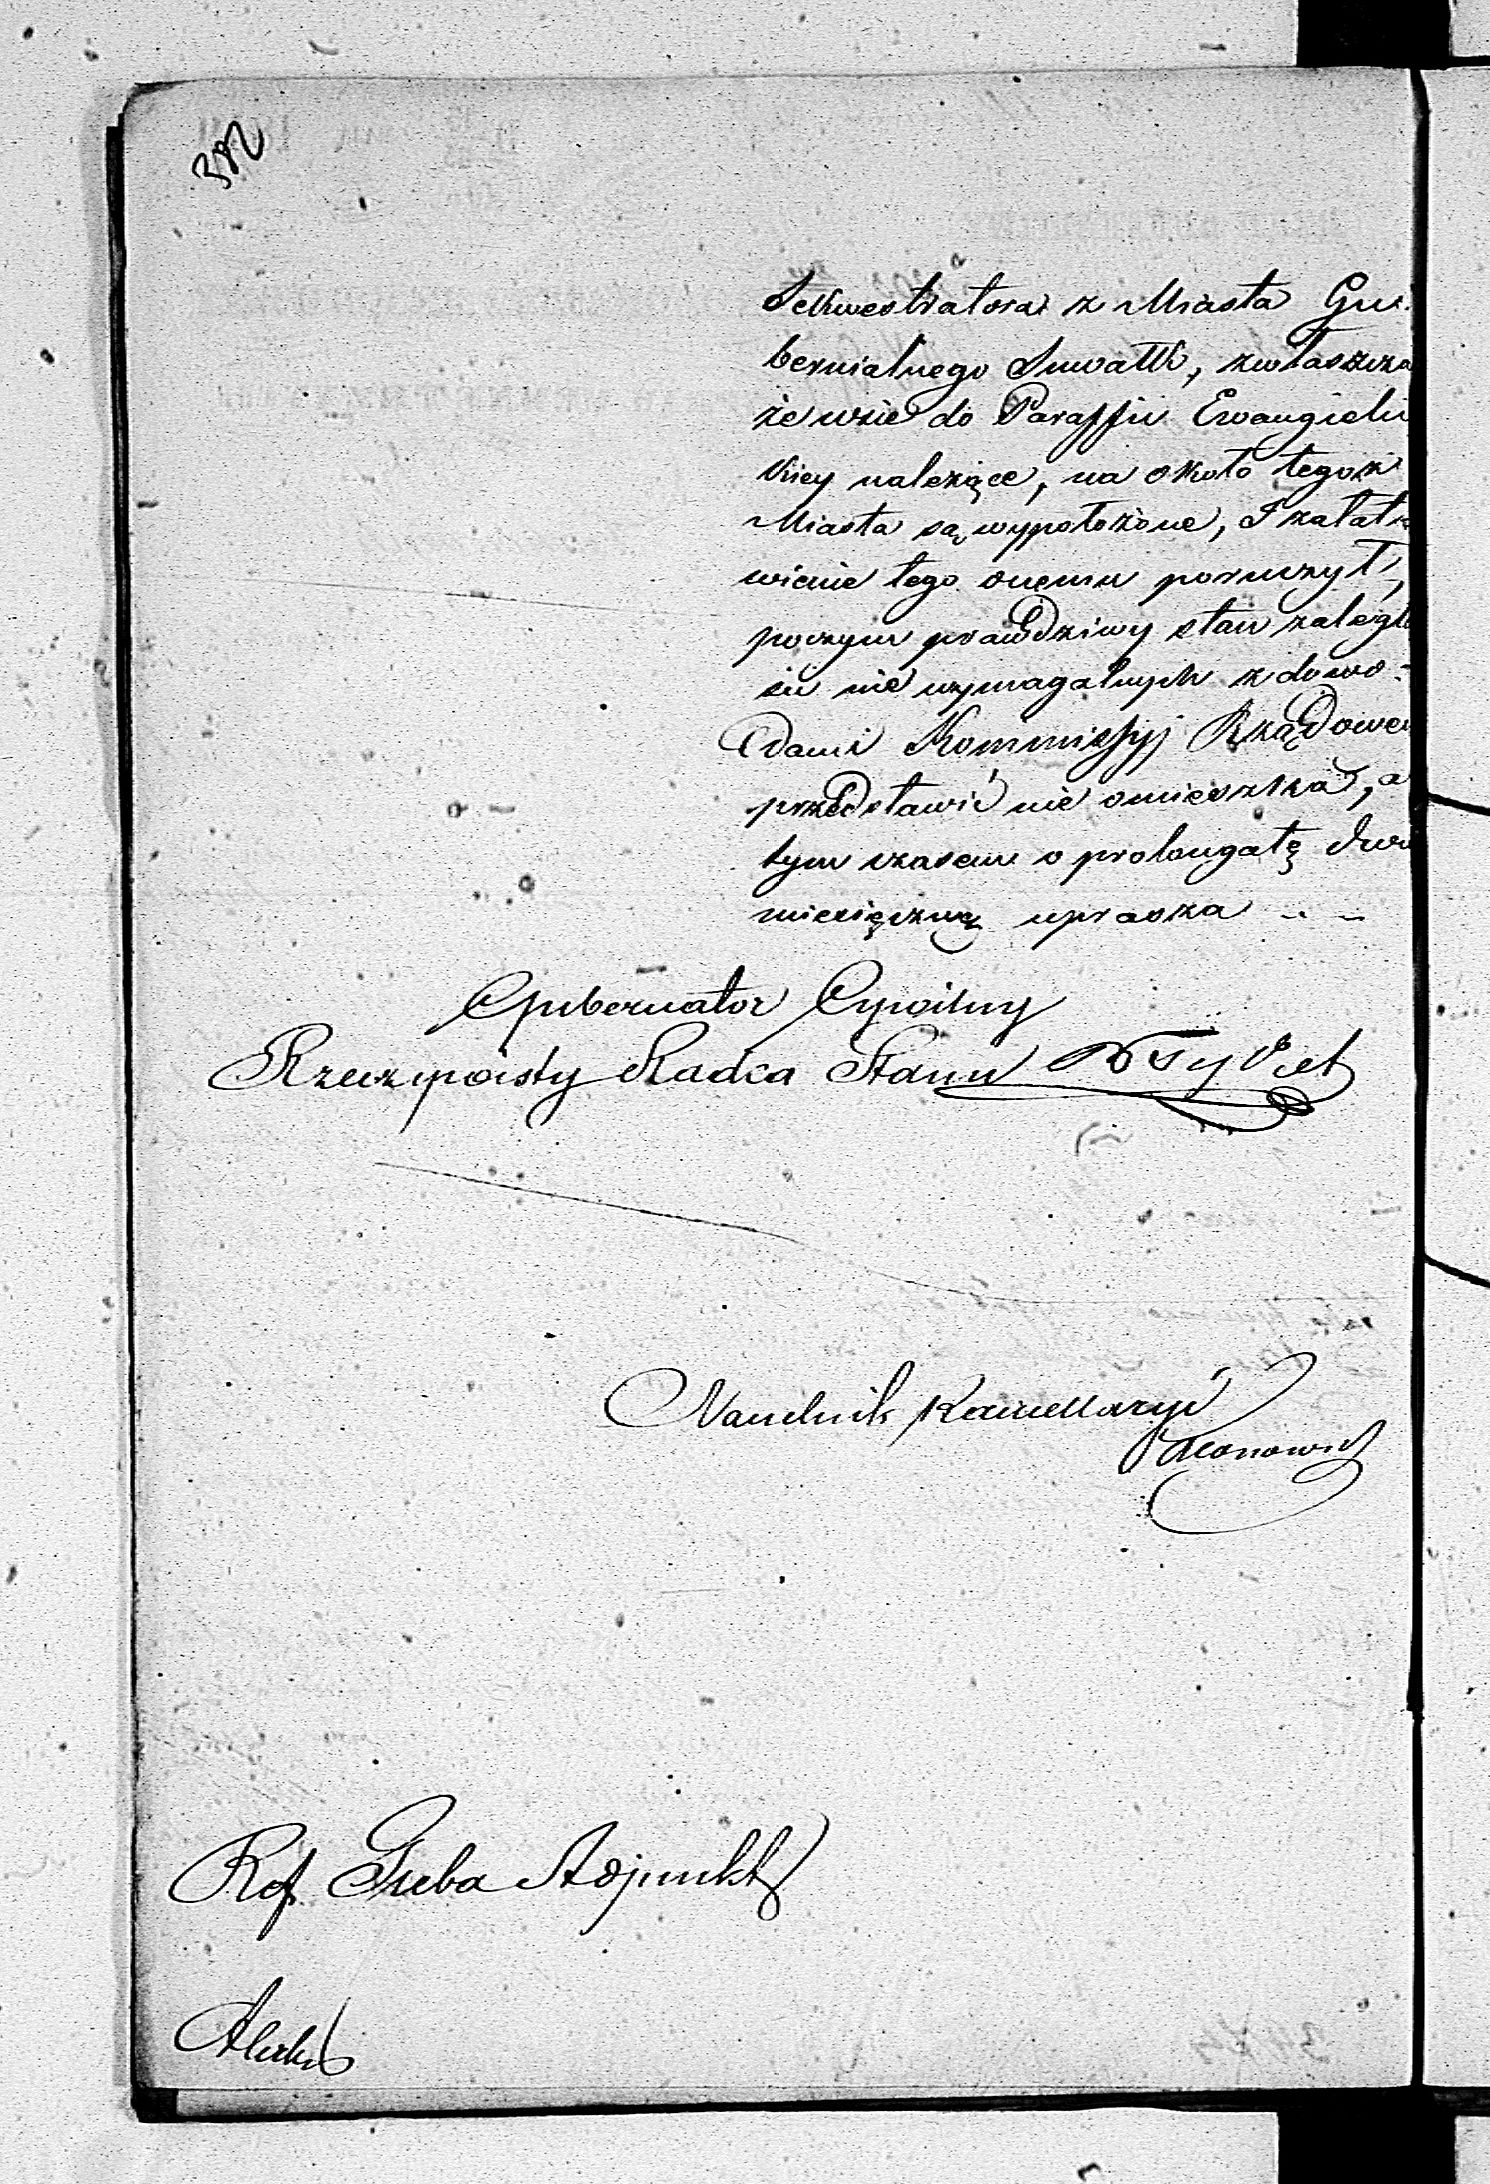 382
Sekwestratora z Miasta Gu-
bernialnego Suwałk, zwłaszcza
że wsie do Paraffii Ewangieli
kiey należące, na około tegoż
Miasta są wypołożone, I załat
wienie tego onemu poruczył,
poczym prawdziwy stan zaległo
ści nie wymagalnych z dowo-
dami Kommissyj Rządowey
przedstawić nie omieszka, a
tym czasem o prolongatę dwu
miesięczną uprasza
Gubernator Cywilny
Rzeczywisty Radca Stanu
Naczelnik Kancellaryi
Ref. Greba Adjunkt